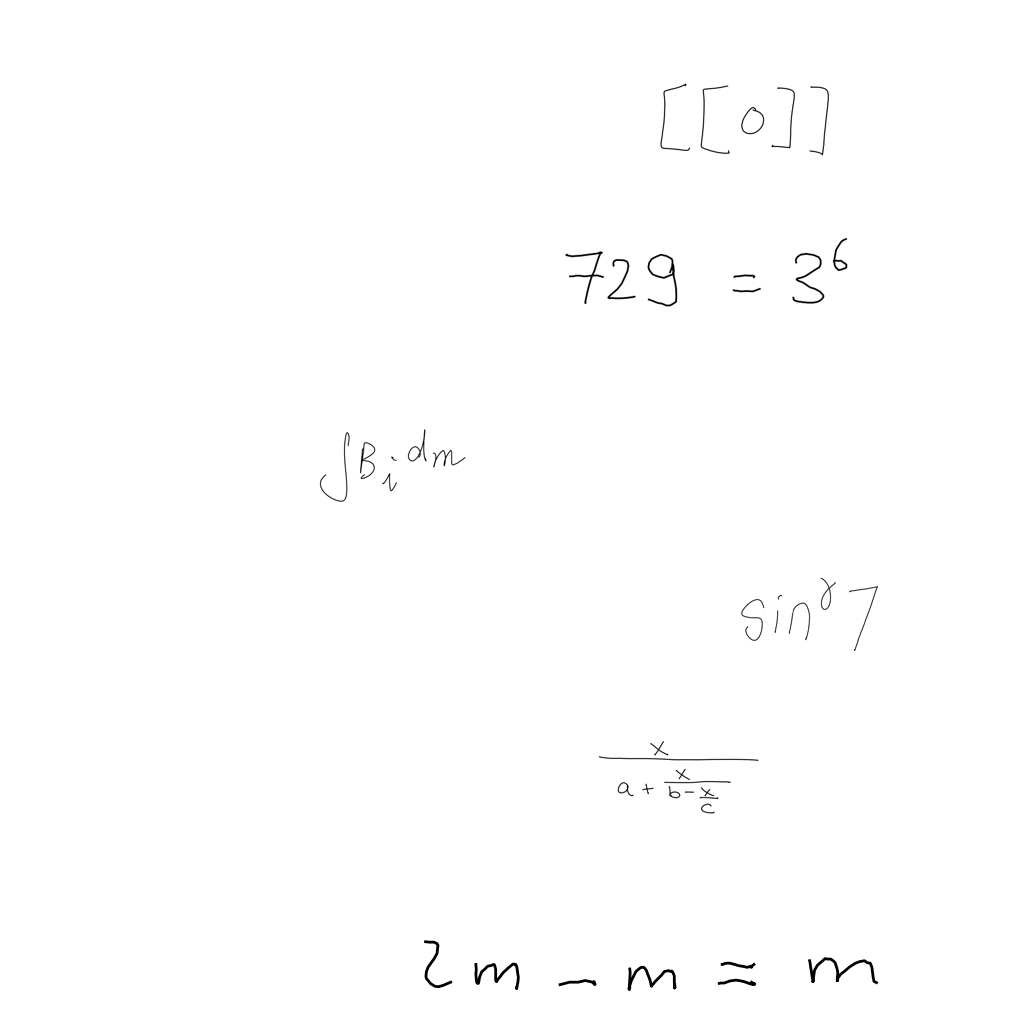 [[0]]
729 = 3^6
∫B_i dm
sin^γ 7
\frac{x}{a+\frac{x}{b-\frac{x}{c}}}
2m - m = m